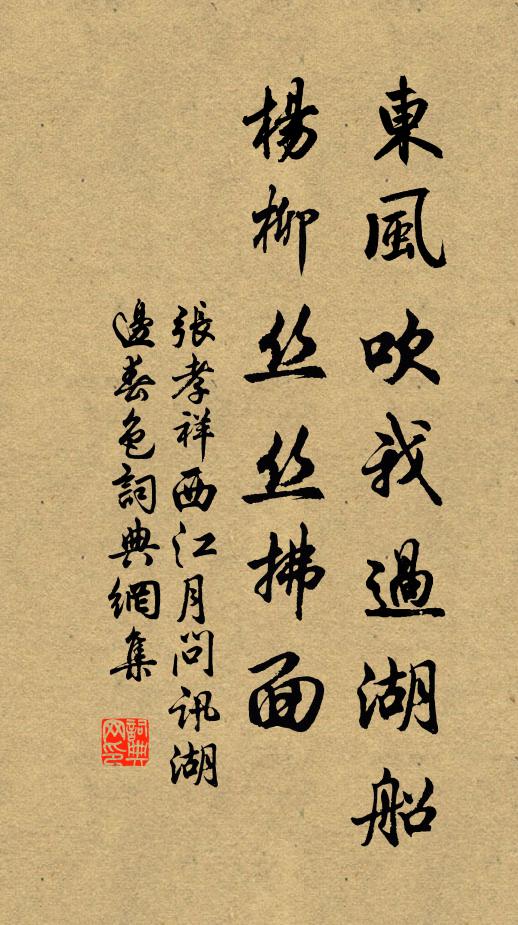 東風吹我過湖船
楊柳丝丝拂面
張孝祥西江月問訊湖
邊春色詞典網集
詞典
网印